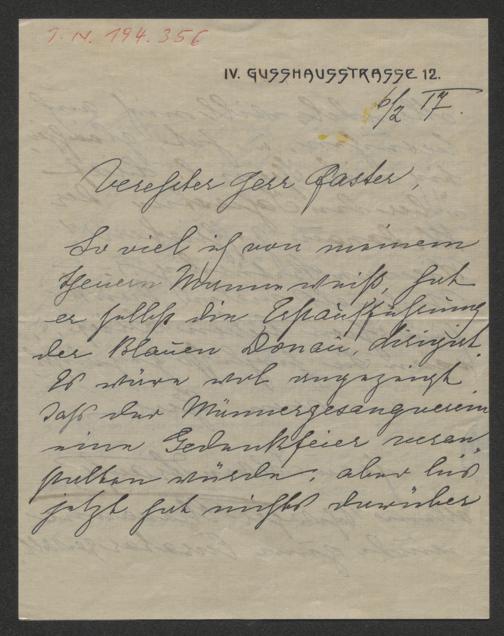 I. N. 194.356
IV. GUSSHAUSSTRASSE 12.
6/2 17.
Verehrter Herr Paster,
So viel ich von meinem
theuern Manne weiß, hat
er selbst die Erstaufführung
der Blauen Donau, dirigirt.
Es wäre wol angezeigt
daß der Männergesangverein
eine Gedenkfeier veran
stalten würde, aber bis
jetzt hat nichts darüber